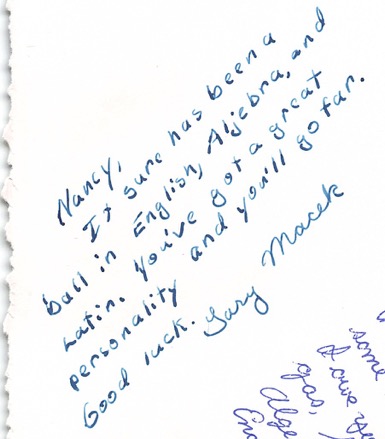 Nancy,
It sure has been a
ball in English, Aljebra, and
Latin. You've got a great
personality and you'll go far.
Good luck. Gary Macek
some
I owe
gas,
Alge